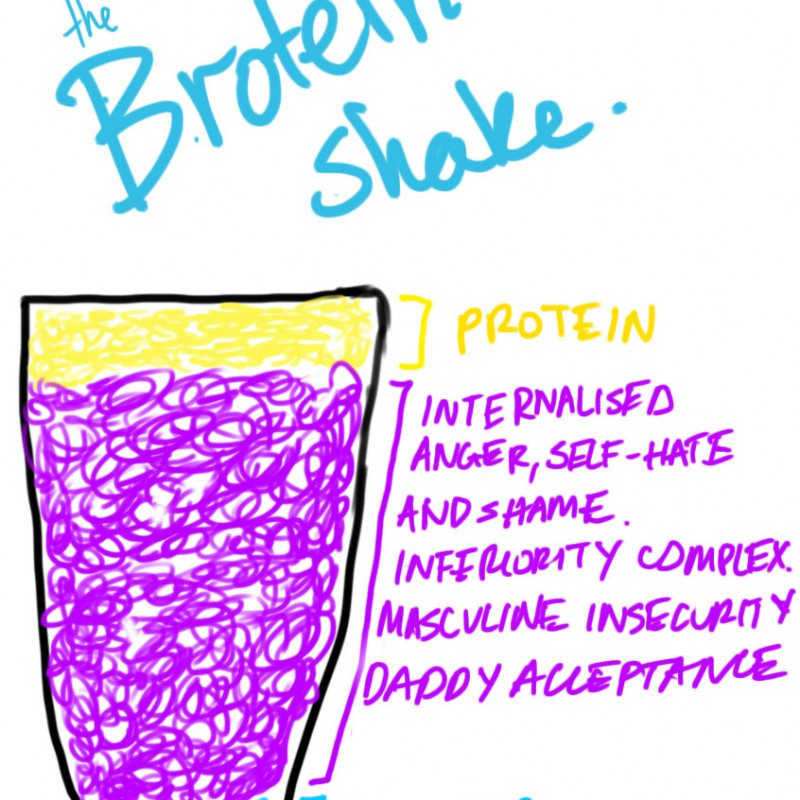 the
Brotein
shake.
PROTEIN
INTERNALISED
ANGER, SELF-HATE
AND SHAME.
INFERIORITY COMPLEX.
MASCULINE INSECURITY
DADDY ACCEPTANCE